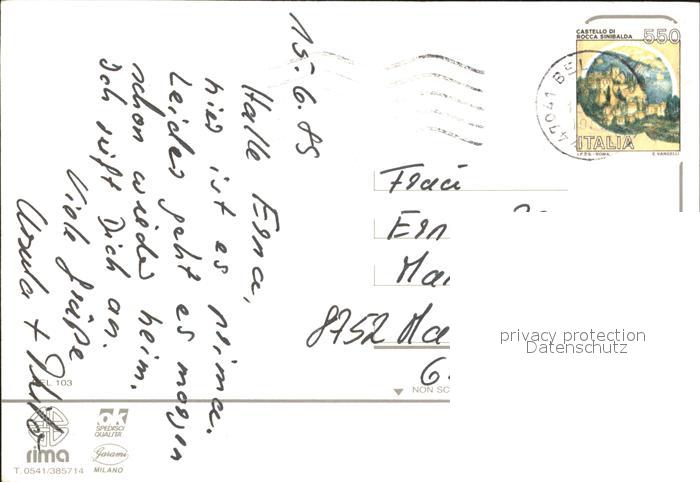 15.6.85
Hallo Erna,
hier ist es prima.
Leider geht es morgen
schon wieder heim.
Ich ruf Dich an.
Viele Grüße
Ursula +
CASTELLO DI
ROCCA SINIBALDA
550
ITALIA
I.P.Z.S. - ROMA
E. VANGELLI
47041 BEL
Frau
Ern
Ma
8752 Ma
G
privacy protection
Datenschutz
NON SC
EL 103
rima
T. 0541/385714
ok
SPEDISCI
QUALITA'
Garami
MILANO